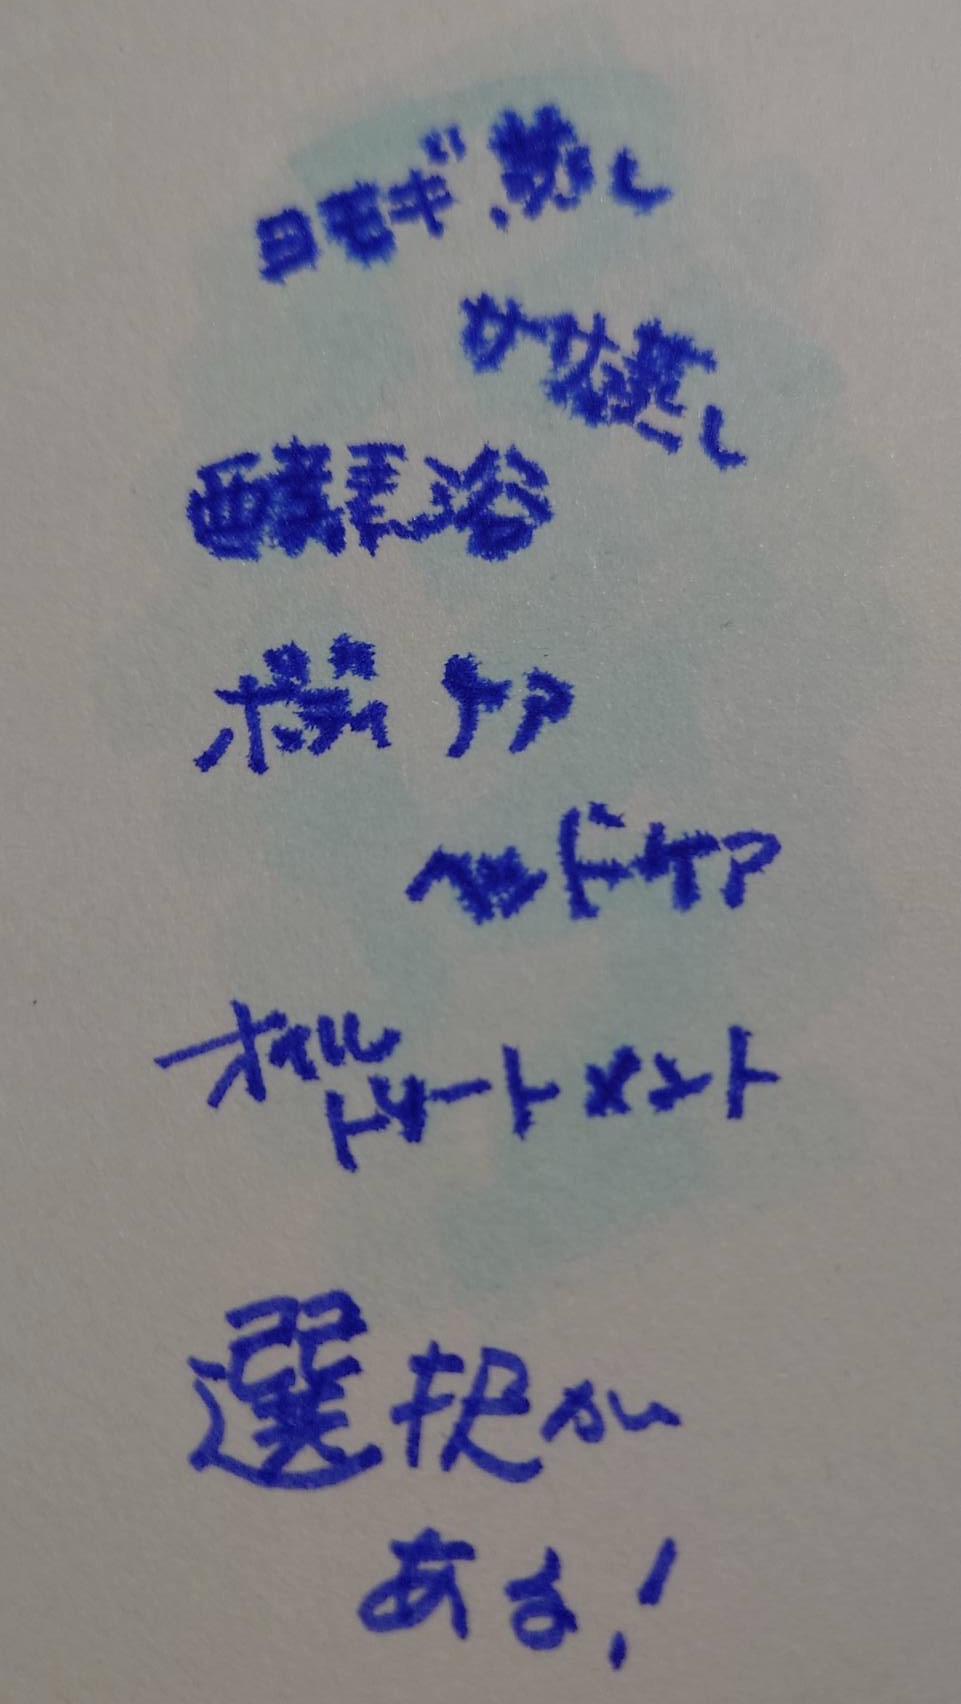 ヨモギ蒸し
酵素浴
ボディケア
ヘッドケア
オイル
トリートメント
選択が
ある!